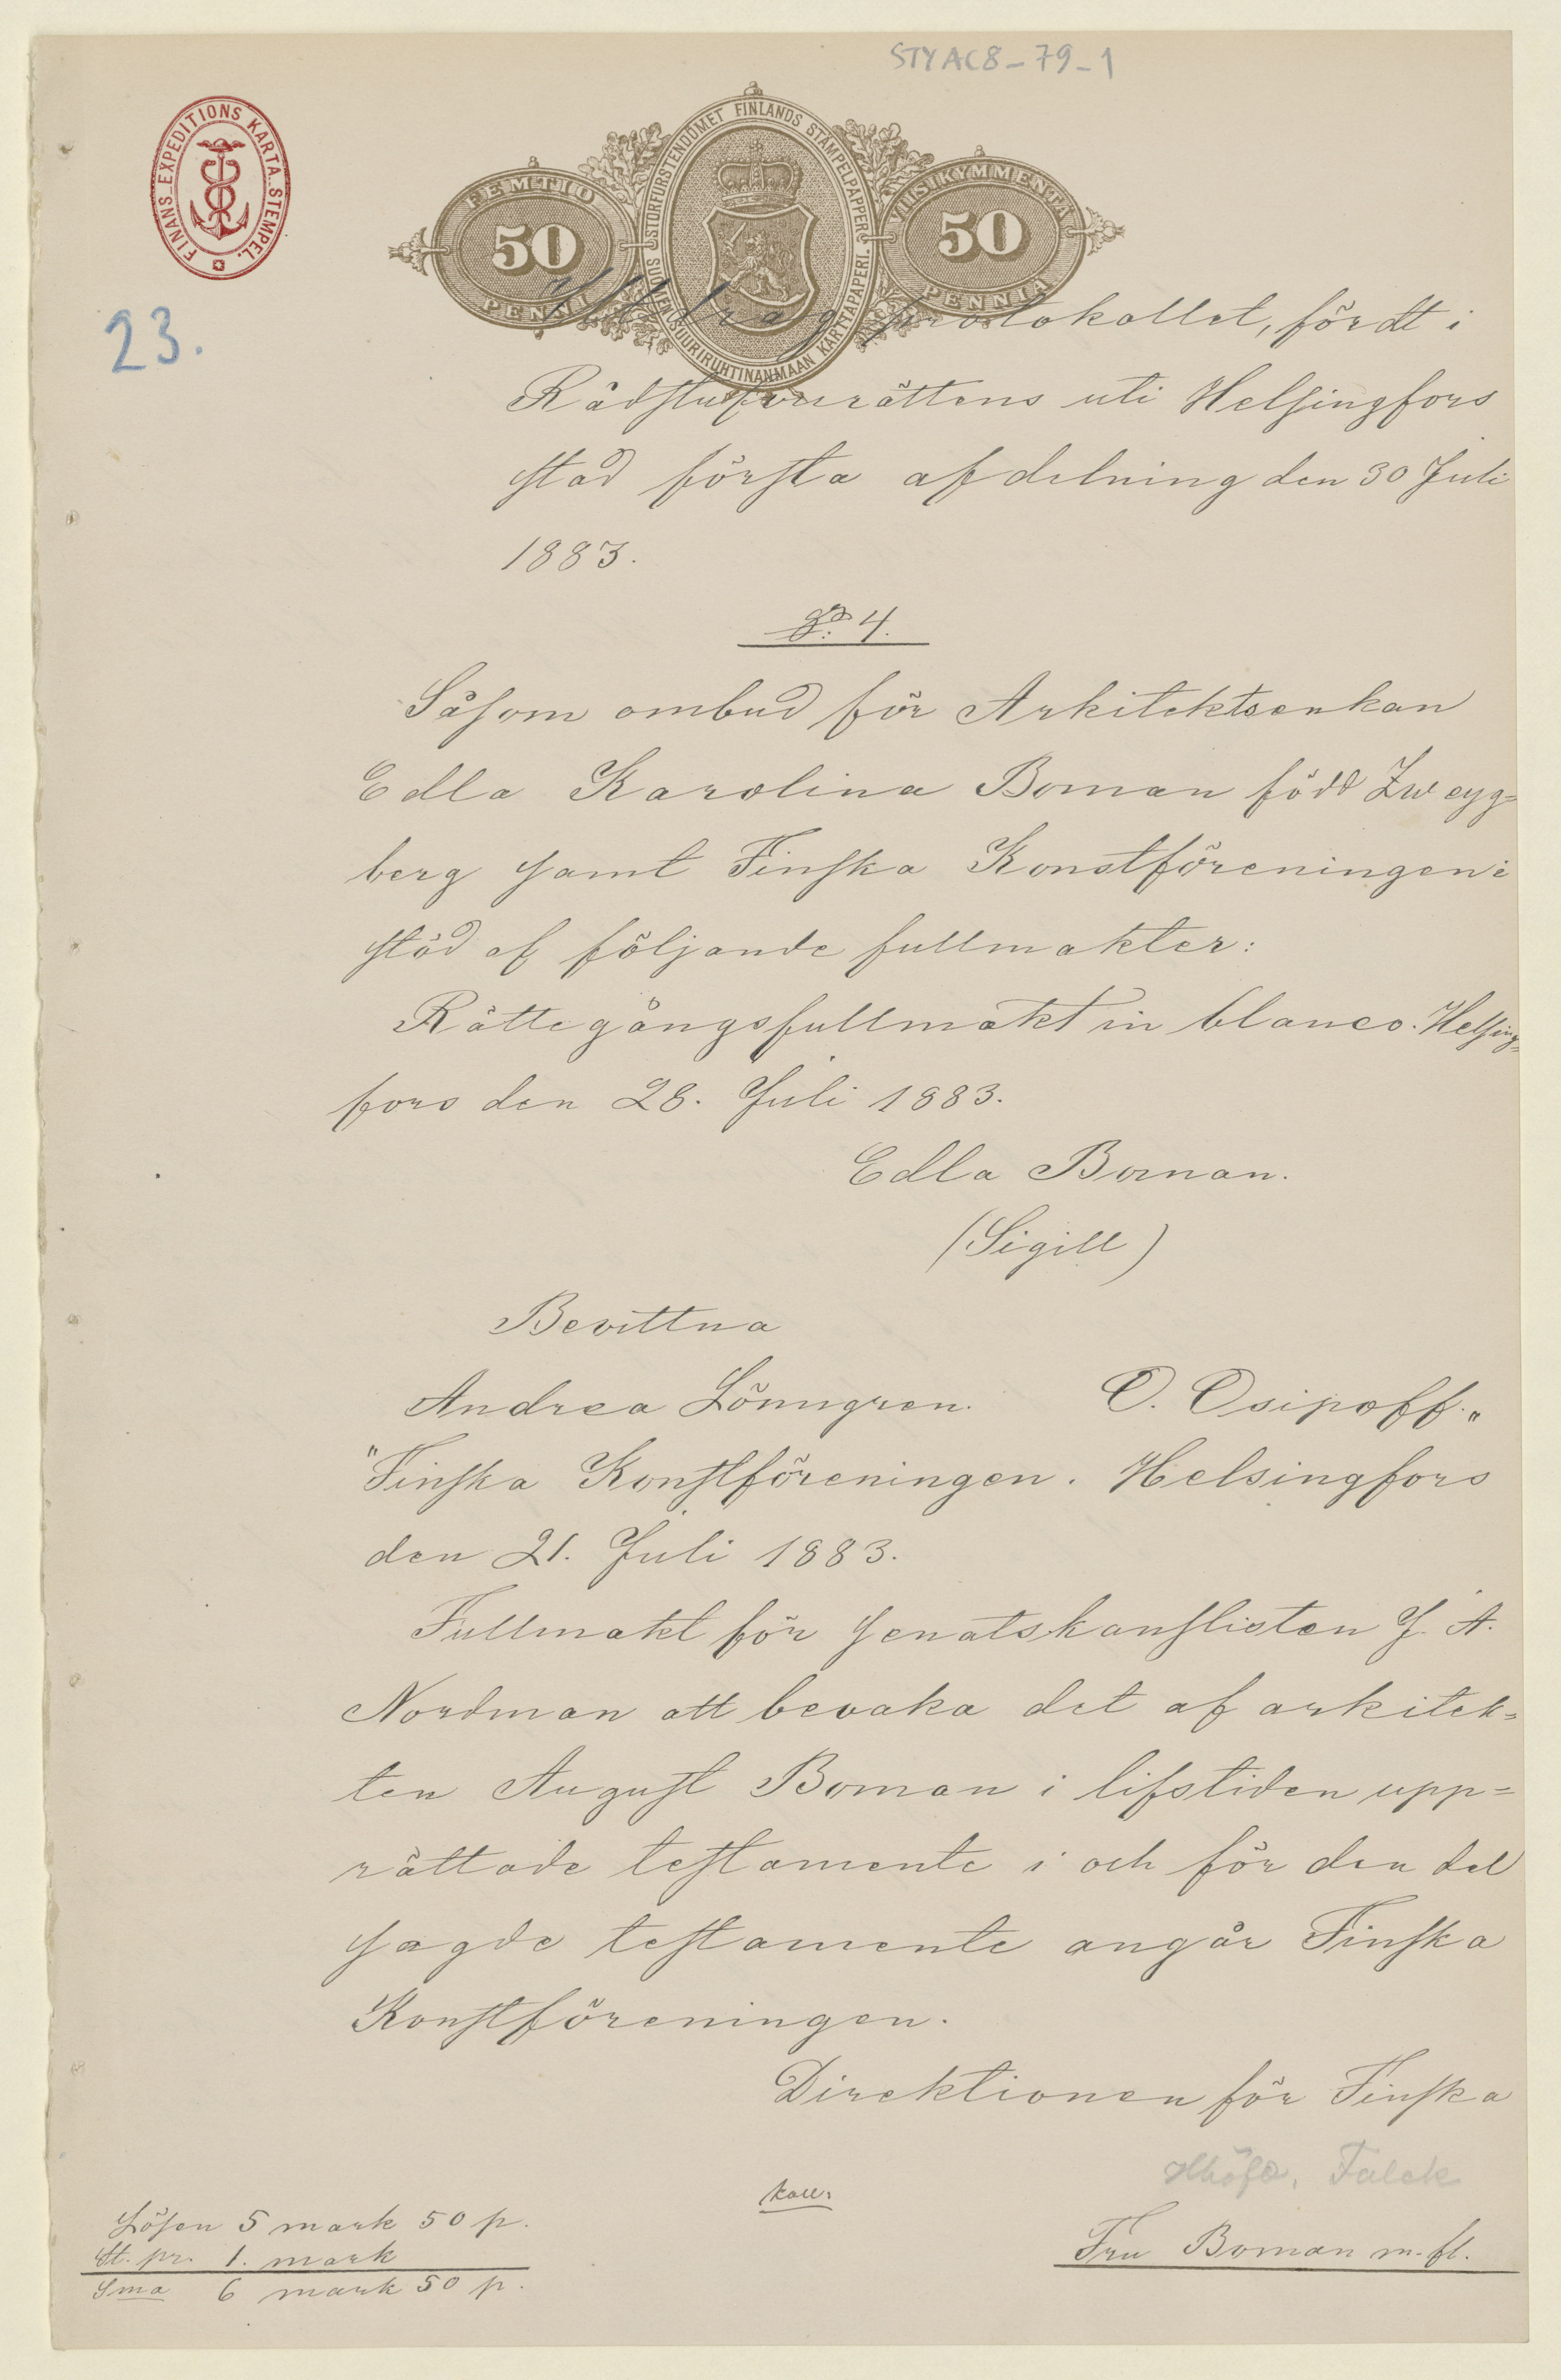 STYAC8-79-1
FINANS-EXPEDITIONS KARTA-STEMPEL.
STORFURSTENDÖMET FINLANDS STÄMPELPAPPER
SUOMEN SUURIRUHTINANMAAN KARTTAPAPERI.
FEMTIO
50
PENNI
VIISIKYMMENTÄ
50
PENNIÄ
23.
Utdrag protokollet, fördt i
Rådstufvurättens uti Helsingfors
stad första afdelning den 30 Juli
1883.
§: 4.
Såsom ombud för Arkitektsenkan
Edla Karolina Boman född Zweyg=
berg samt Finska Konstföreningen i
stöd af följande fullmakter:
Rättegångsfullmakt in blanco. Helsing=
fors den 28. Juli 1883.
Edla Boman.
(Sigill)
Bevittna
Andrea Lönngren. O. Osipoff."
"Finska Konstföreningen. Helsingfors
den 21. Juli 1883.
Fullmakt för senatskanslisten J. A.
Nordman att bevaka det af arkitek=
ten August Boman i lifstiden upp=
rättade testamente i och för den del
sagde testamente angår Finska
Konstföreningen.
Direktionen för Finska
Falck
koll:
Fru Boman m. fl.
Lösen 5 mark 50 p.
St. pr. 1. mark
Sma 6 mark 50 p.